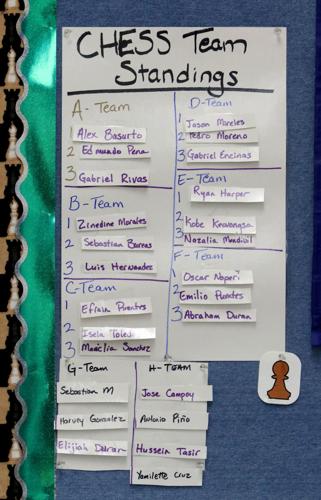 CHESS Team
Standings
A-Team
1 Alex Basurto
2 Edmundo Pena
3 Gabriel Rivas
B-Team
1 Zinedine Morales
2 Sebastian Barras
3 Luis Hernandez
C-Team
1 Efrain Puentes
2 Isela Toledo
3 Mariclia Sanchez
D-Team
1 Jason Morales
2 Pedro Moreno
3 Gabriel Encinas
E-Team
1 Ryan Harper
2 Kobe
3 Nozalia
F-Team
1 Oscar
2 Emilio Puentes
3 Abraham Duran
G-Team
Sebastian M
Harvey Gonzalez
Elijiah Duran
H-TEAM
Jose Campoy
Antonio Piño
Hussein Tasir
Yamilette Cruz